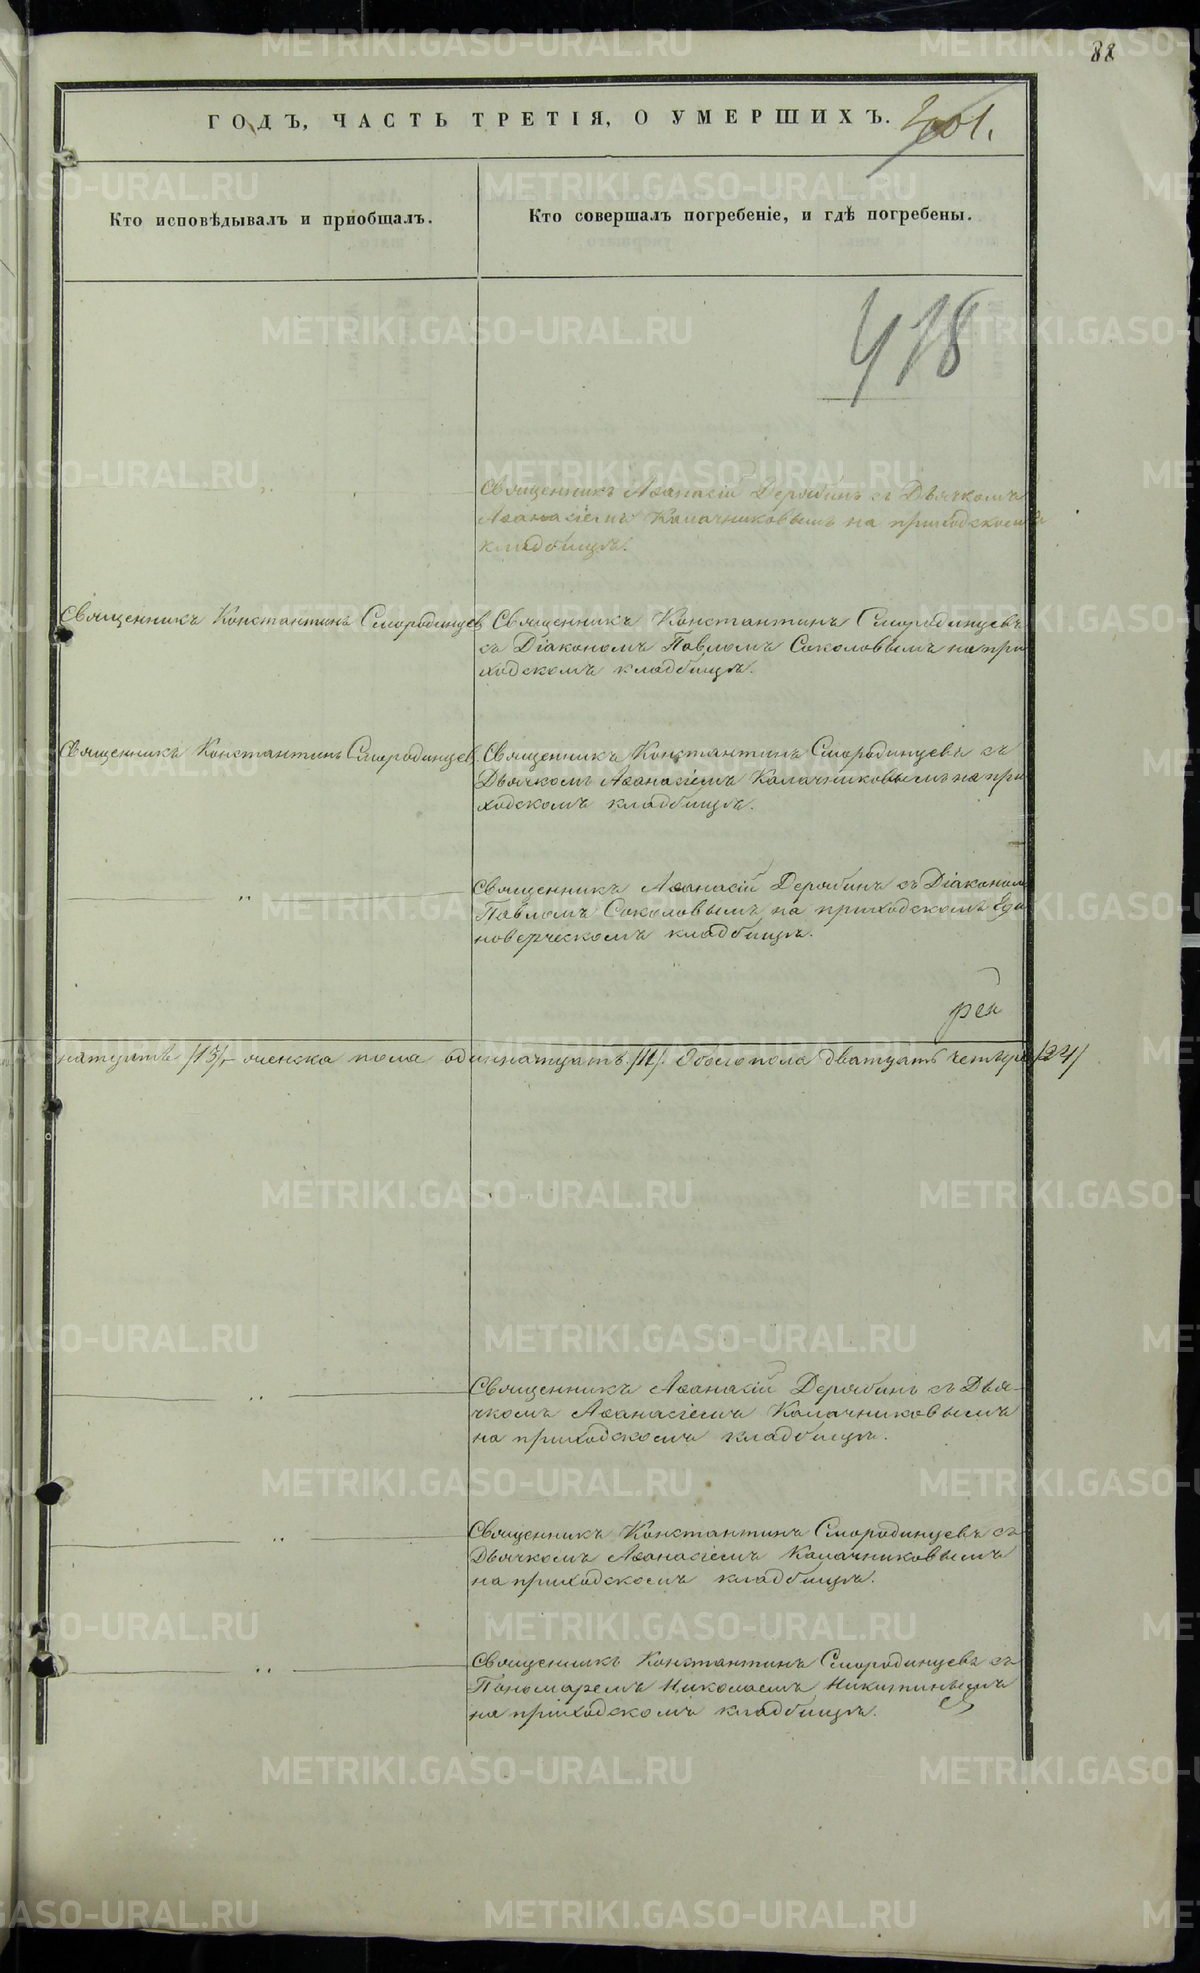 88
ГОДЪ, ЧАСТЬ ТРЕТІЯ, О УМЕРШИХЪ.
Кто исповѣдывалъ и пріобщалъ.
Кто совершалъ погребеніе, и гдѣ погребены.
418
Священникъ Аѳанасій Дерябинъ съ Дьячкомъ
Аѳанасіемъ Калачниковымъ на приходскомъ
кладбищѣ.
Священникъ Константинъ Смородинцев
Священникъ Константинъ Смородинцевъ
съ Діакономъ Павломъ Соколовымъ на при
ходскомъ кладбищѣ.
Священникъ Константинъ Смородинцев
Священникъ Константинъ Смородинцевъ съ
Дьячкомъ Аѳанасіемъ Калачниковымъ на при
ходскомъ кладбищѣ.
Священникъ Аѳанасій Дерябинъ съ Діаконом
Павломъ Соколовымъ на приходскомъ Еди
новерческомъ кладбищѣ.
натцать /13/, женска пола одиннатцать /11/. Обоего пола дватцать четыре /24/
Священникъ Аѳанасій Дерябинъ съ Дья-
чкомъ Аѳанасіемъ Калачниковымъ
на приходскомъ кладбищѣ.
Священникъ Константинъ Смородинцевъ съ
Дьячкомъ Аѳанасіемъ Калачниковымъ
на приходскомъ кладбищѣ.
Священникъ Константинъ Смородинцевъ съ
Пономаремъ Николаемъ Никитинымъ
на приходскомъ кладбищѣ.
METRIKI.GASO-URAL.RU